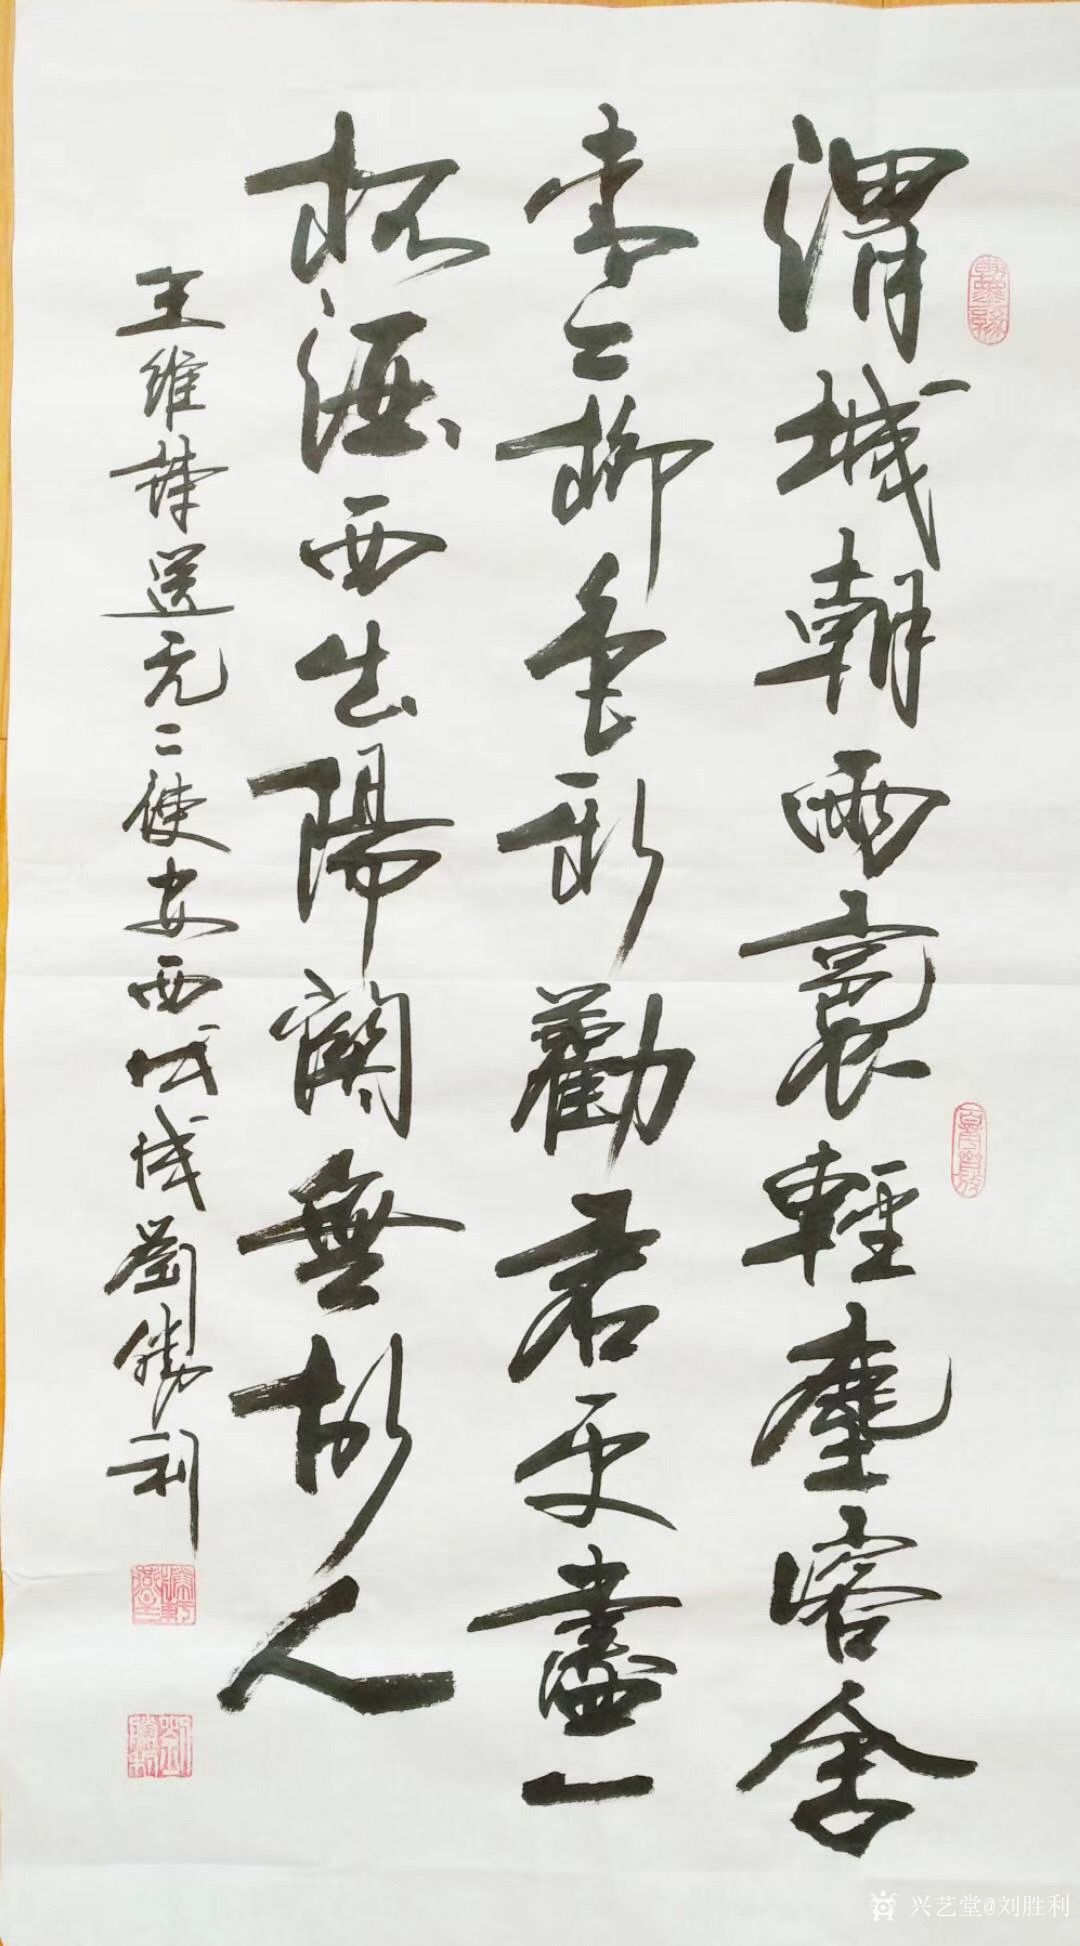 渭城朝雨裛輕塵客舍
青〻柳色新勸君更盡一
杯酒西出陽關無故人
王維詩送元二使安西戊戌劉勝利
兴艺堂@刘胜利